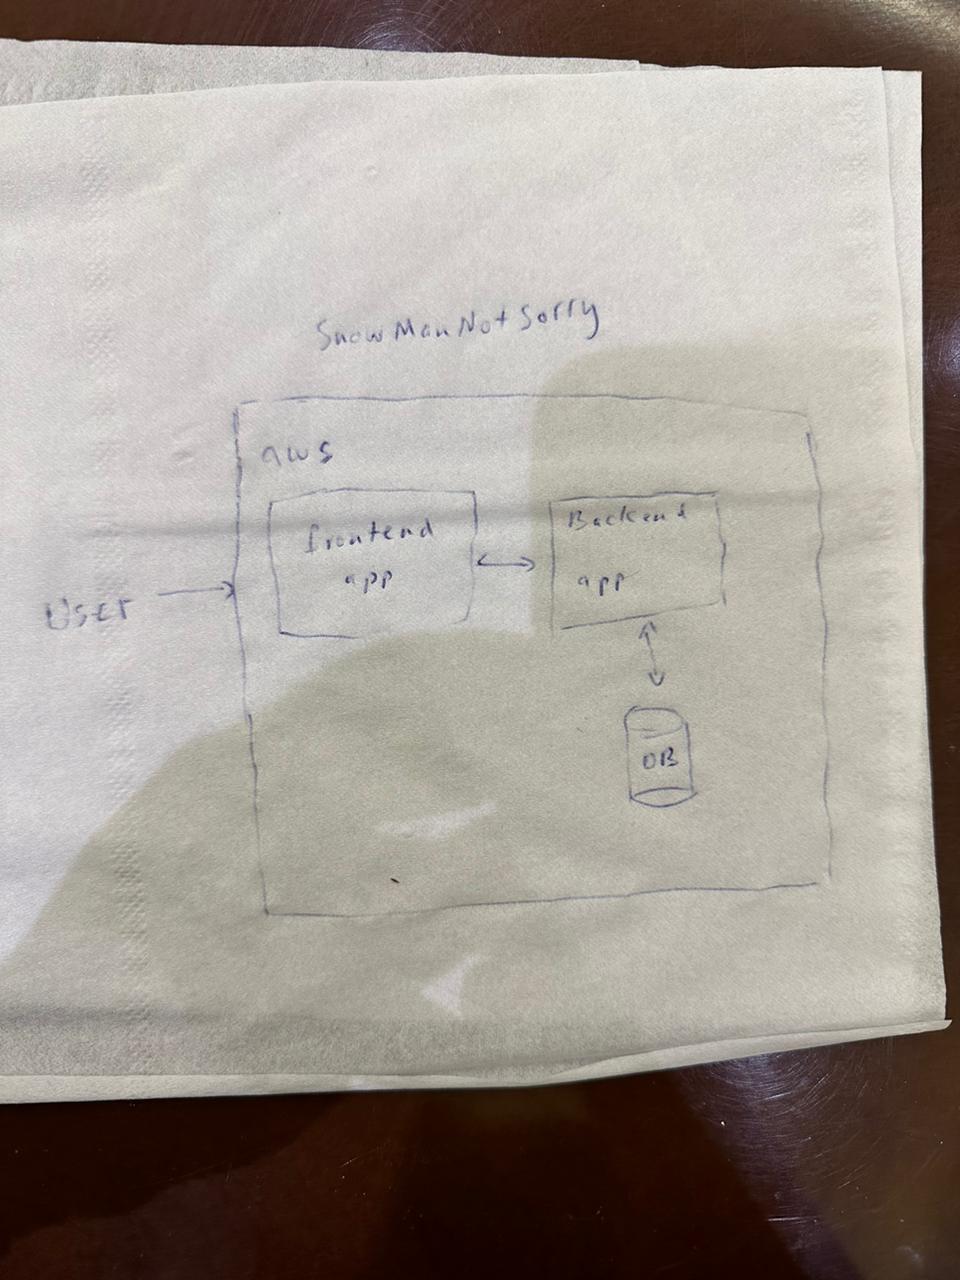 SnowManNotSorry
aws
frontend
app
Backend
app
User
DB